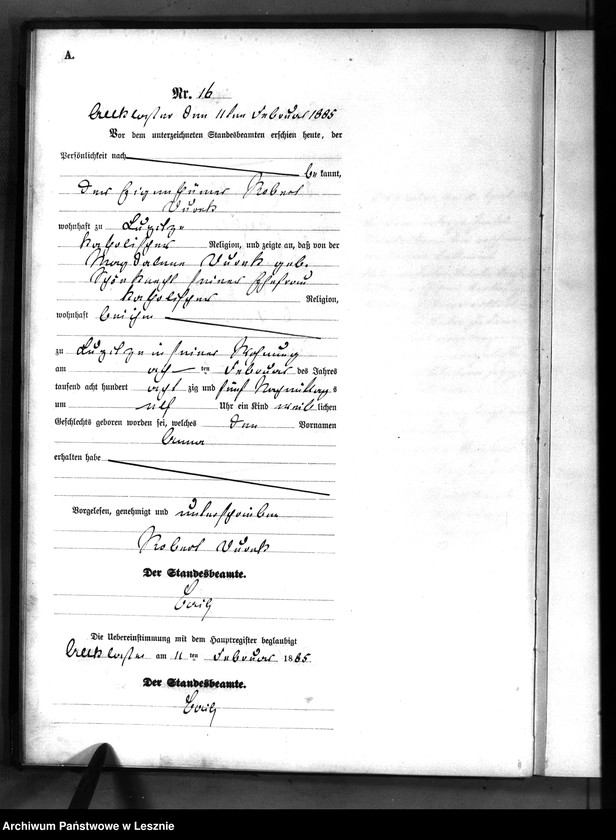 A.
Nr. 16
Altkloster den 11ten Februar 1885
Vor dem unterzeichneten Standesbeamten erschien heute, der
Persönlichkeit nach
be kannt,
der Eigenthümer Robert
wohnhaft zu
katholischer Religion, und zeigte an, daß von der
Magdalena geb.
seiner Ehefrau
katholischer Religion,
wohnhaft bei ihm
zu in seiner Wohnung
am acht ten Februar des Jahres
tausend acht hundert acht zig und fünf Nachmittag s
um elf Uhr ein Kind weib lichen
Geschlechts geboren worden sei, welches den Vornamen
Anna
erhalten habe
Vorgelesen, genehmigt und unterschrieben
Robert
Der Standesbeamte.
Die Uebereinstimmung mit dem Hauptregister beglaubigt
Altkloster am 11 ten Februar 1885
Der Standesbeamte.
Archiwum Państwowe w Lesznie